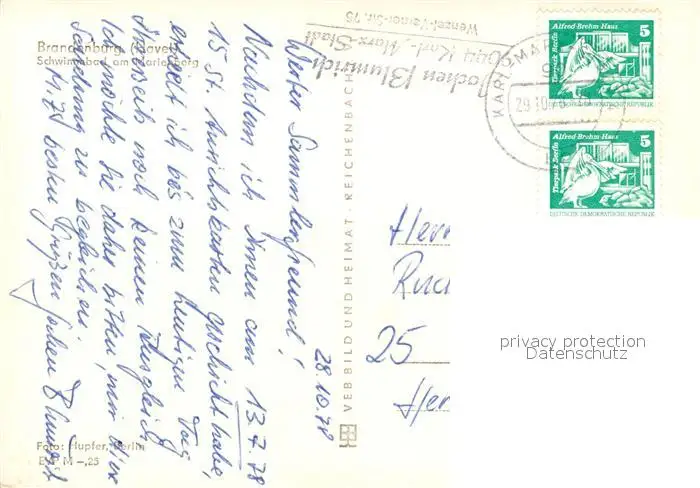 Brandenburg (Havel)
Schwimmbad am Marienberg
Jochen Blumrich
Karl-Marx-Stadt
Wenzel-Verner-Str. 75
KARL-MAR
29.10
Alfred-Brehm-Haus
5
Tierpark Berlin
DEUTSCHE DEMOKRATISCHE REPUBLIK
Alfred-Brehm-Haus
5
Tierpark Berlin
DEUTSCHE DEMOKRATISCHE REPUBLIK
28.10.78
Werter Sammlerfreund!
Nachdem ich Ihnen am 13.7.78
15 St. Ansichtskarten geschickt habe,
erhielt ich bis zum heutigen Tag
Ihrerseits noch keinen Ausgleich
Ich möchte Sie daher bitten, meine
Sendung zu begleichen.
M. besten Grüßen Jochen Blumrich
VEB BILD UND HEIMAT REICHENBACH
Herr
25
Her
privacy protection
Datenschutz
Foto: Hupfer, Berlin
EVP M -,25